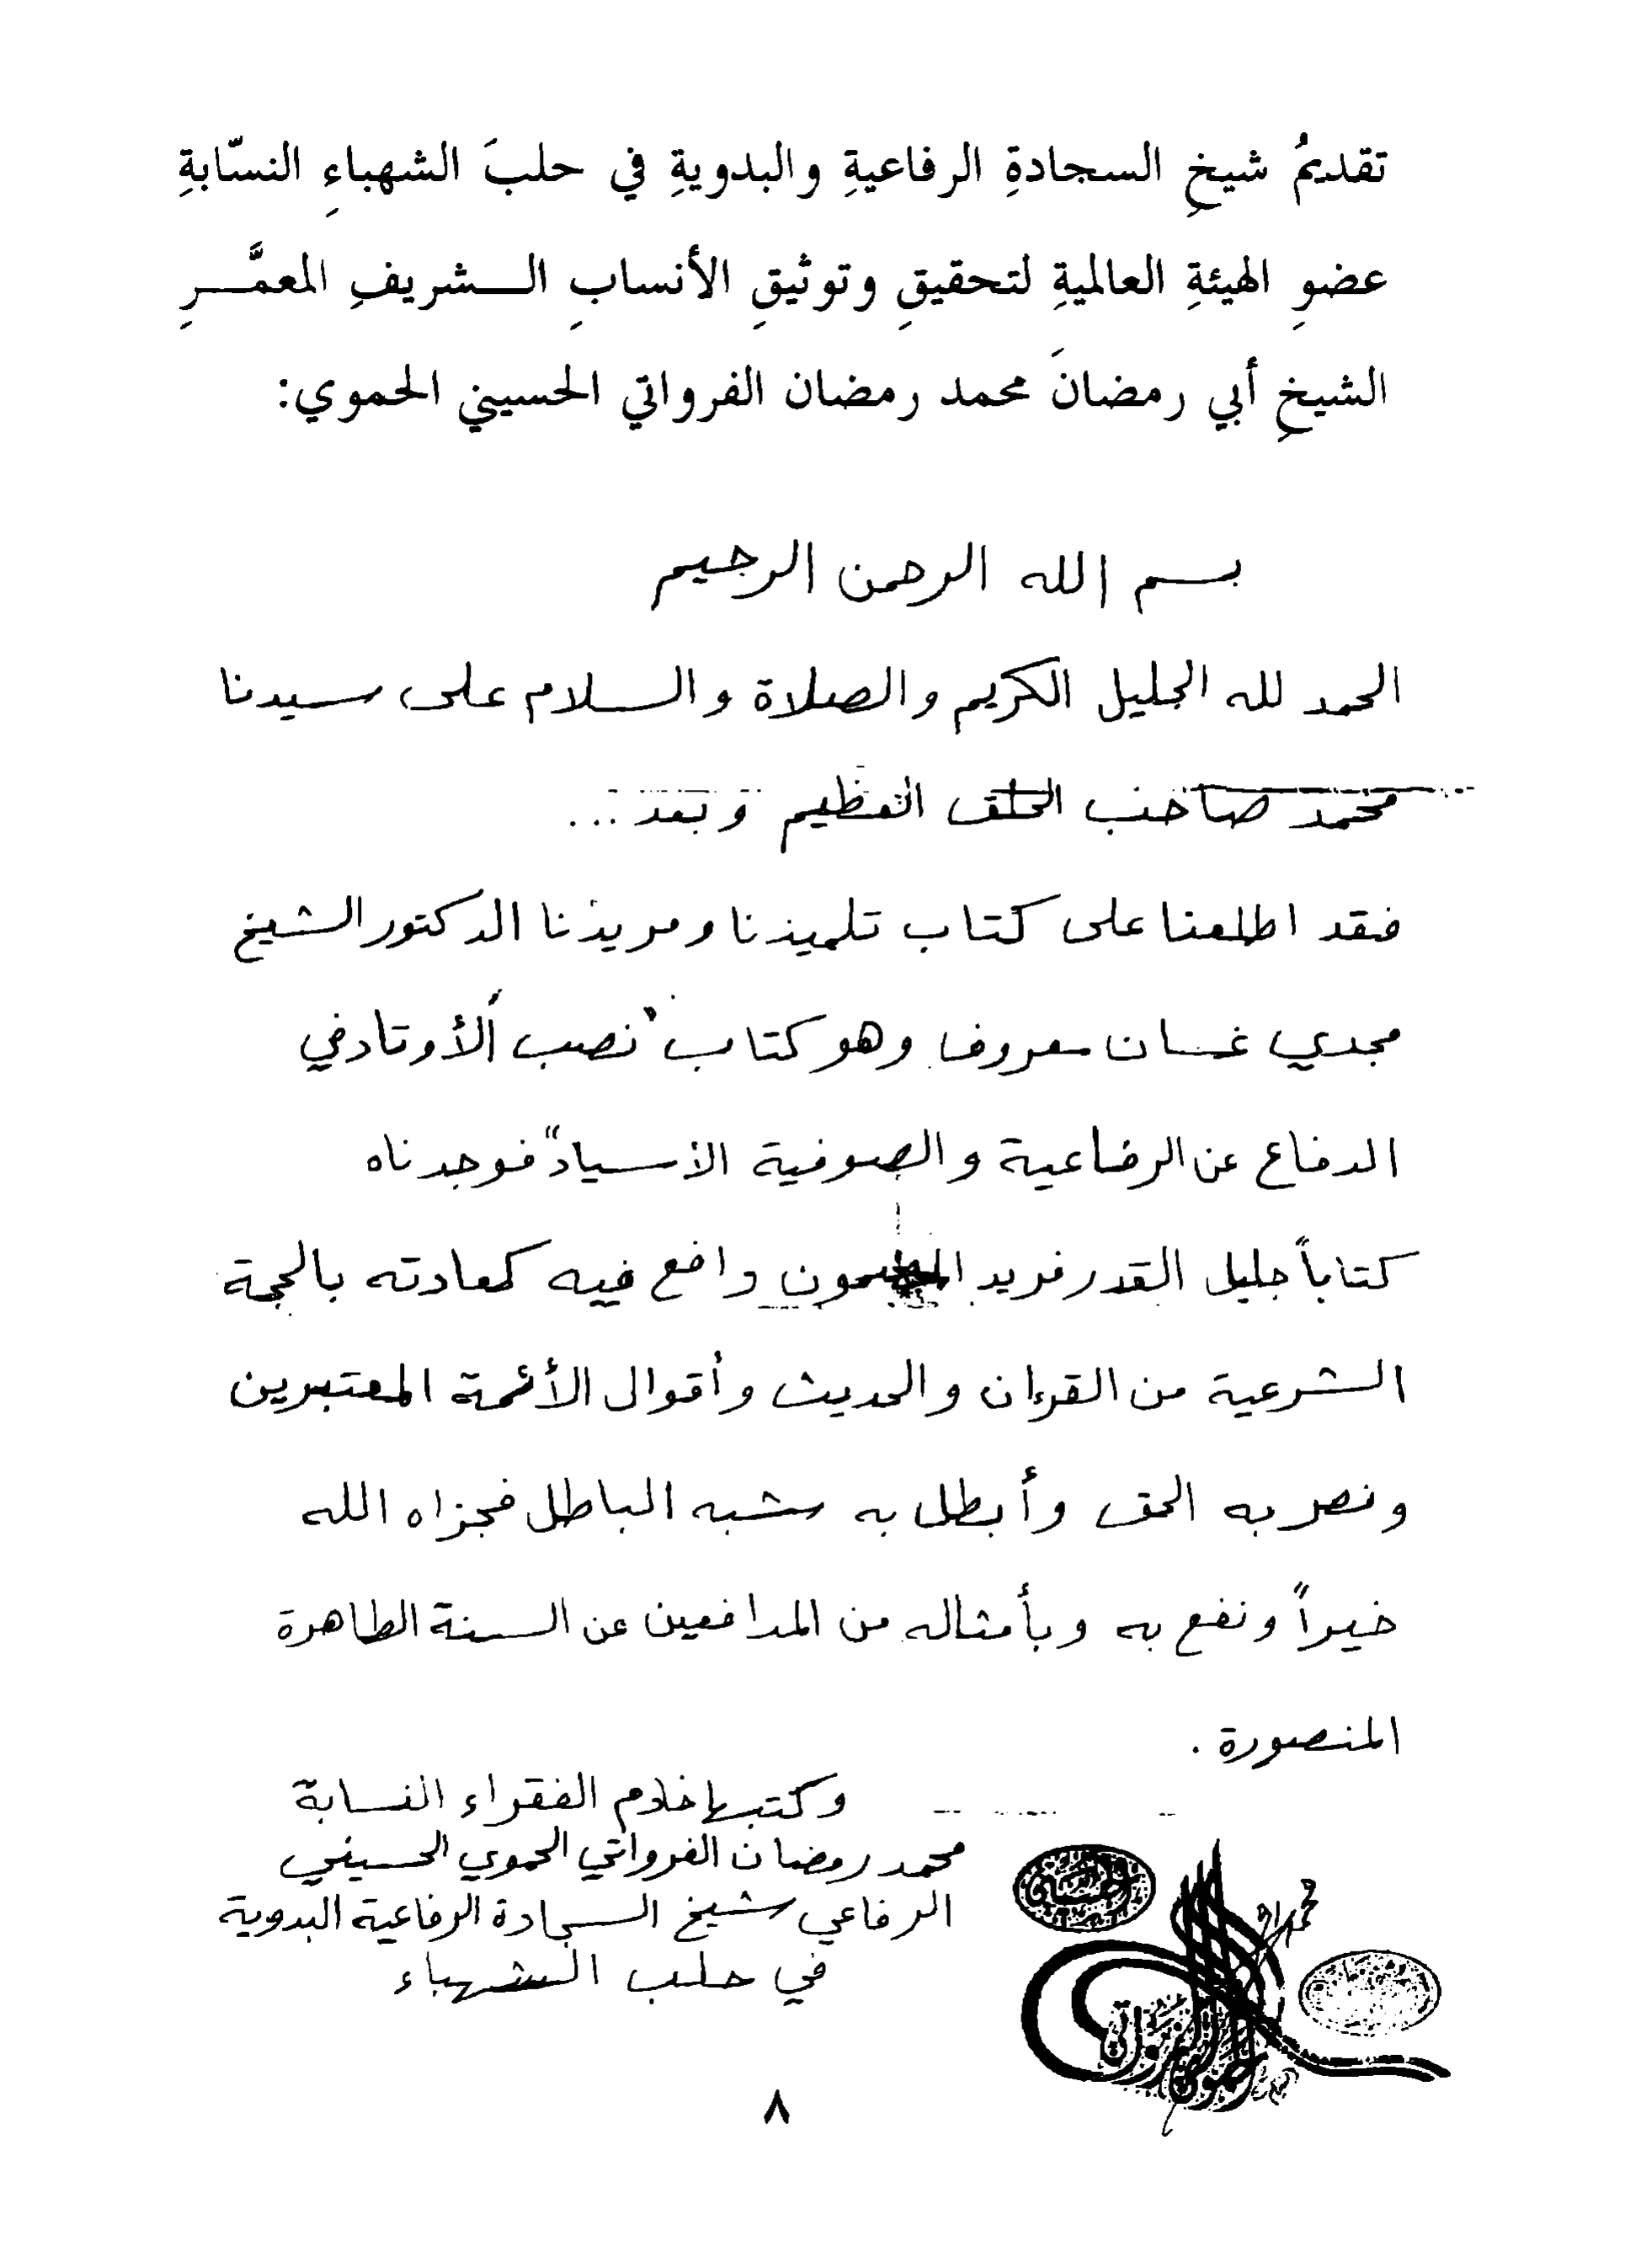 تقديمُ شيخِ السجادةِ الرفاعيةِ والبدويةِ في حلبَ الشهباءِ النسّابةِ
عضوِ الهيئةِ العالميةِ لتحقيقِ وتوثيقِ الأنسابِ الـشريفِ المعمَّـرِ
الشيخِ أبي رمضانَ محمد رمضان الفرواتي الحسيني الحموي:
بسم الله الرحمن الرحيم
الحمد لله الجليل الكريم والصلاة والسلام على سيدنا
محمد صاحب الخلق العظيم وبعد ...
فقد اطلعنا على كتاب تلميذنا ومريدنا الدكتور الشيخ
مجدي غسان معروف وهو كتاب "نصب الأوتاد في
الدفاع عن الرفاعية والصوفية الأسياد" فوجدناه
كتاباً جليل القدر فريد المضمون دافع فيه كعادته بالحجة
الشرعية من القرءان والحديث وأقوال الأئمة المعتبرين
ونصر به الحق وأبطل به شبه الباطل فجزاه الله
خيراً ونفع به وبأمثاله من المدافعين عن السنة الطاهرة
المنصورة .
وكتبها خادم الفقراء النسابة
محمد رمضان الفرواتي الحموي الحسيني
الرفاعي شيخ السجادة الرفاعية البدوية
في حلب الشهباء
٨